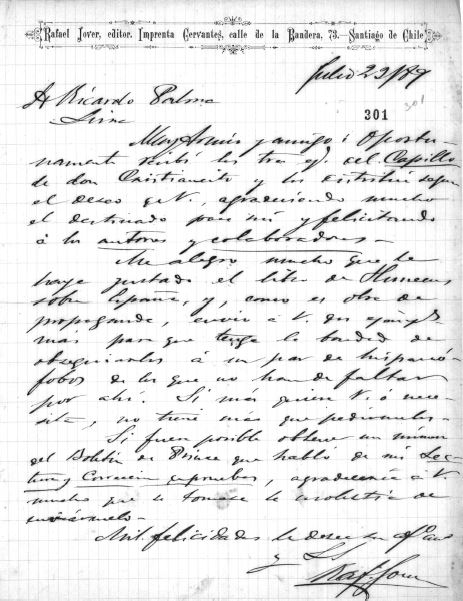 Rafael Jover, editor. Imprenta Cervantes, calle de la Bandera, 73.—Santiago de Chile
Julio 23/89
301
301
Dr Ricardo Palma
Lima
Muy Sr mio y amigo: Oportu-
namente recibí los tres ej. del Capillo
de don Cristiancito y los distribuí segun
el deseo de V., agradeciendo mucho
el destinado para mí y felicitando
á los autores y colaboradores.
Me alegro mucho que le
haya gustado el libro de Huneeus
sobre España, y, como es obra de
propaganda, envio á V. dos ejempls
mas para que tenga la bondad de
obsequiarlos á un par de hispanó-
fobos de los que no han de faltar
por ahí. Si mas quiere V. ó nece-
sita, no tiene mas que pedirmelos.
Si fuera posible obtener un número
del Boletin de Prince que habló de mi Lec-
tura y Correccion de pruebas, agradeceria á V.
mucho que se tomase la molestia de
enviármelo.
Mil felicidades le desea su afmo
y SS
Raf. Jover